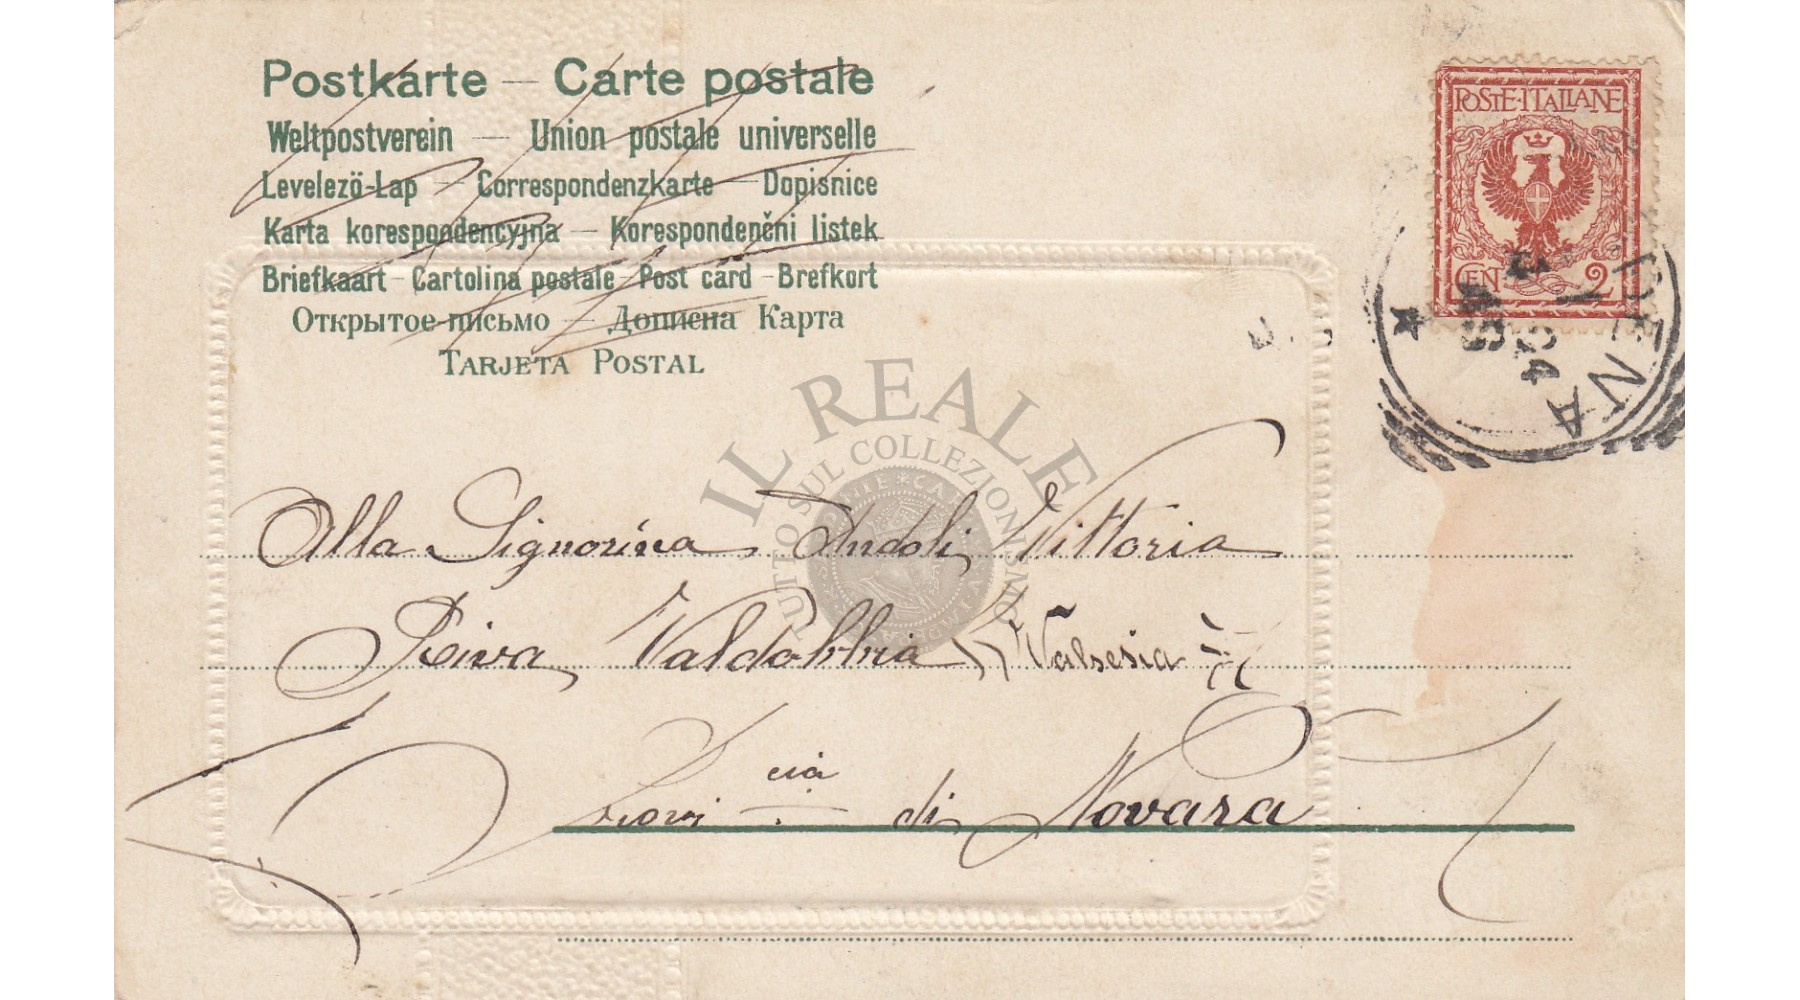 Postkarte — Carte postale
Weltpostverein — Union postale universelle
Levelező-Lap — Correspondenzkarte — Dopisnice
Karta korespondencyjna — Korespondenčni listek
Briefkaart - Cartolina postale - Post card - Brefkort
Открытое письмо — Дописна Карта
Tarjeta Postal
POSTE·ITALIANE
CEN 2
04
IL REALE
TUTTO SUL COLLEZIONISMO
Alla Signorina Vittoria
Riva Valdobbia (Valsesia)
Provi.cia di Novara